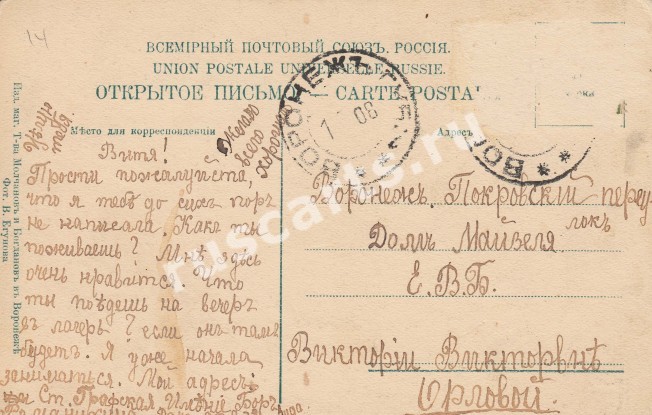 14
ВСЕМІРНЫЙ ПОЧТОВЫЙ СОЮЗЪ. РОССІЯ.
UNION POSTALE UNIVERSELLE RUSSIE.
ОТКРЫТОЕ ПИСЬМО — CARTE POSTALE
Мѣсто для корреспонденціи
Адресъ
Изд. маг. Т-ва Молчановъ и Богдановъ въ Воронежѣ
Фот. В. Егунова
ВОРОНЕЖЪ ГУБ.
1 08
ВО
Желаю
всего
хорошаго
Цѣлую
тебя
Витя!
Прости пожалуйста,
что я тебѣ до сихъ поръ
не написала. Какъ ты
поживаешь? Мнѣ здѣсь
очень нравится. Что
ты поѣдешь на вечеръ
въ лагерь? если онъ тамъ
будетъ. Я уже начала
заниматься. Мой адресъ:
Ст. Графская Имѣніе Боръ
Воронежъ. Покровскій переу
локъ
Домъ Майзеля
Е. В. Б.
Викторіи Викторвнѣ
Орловой.
ruscarts.ru